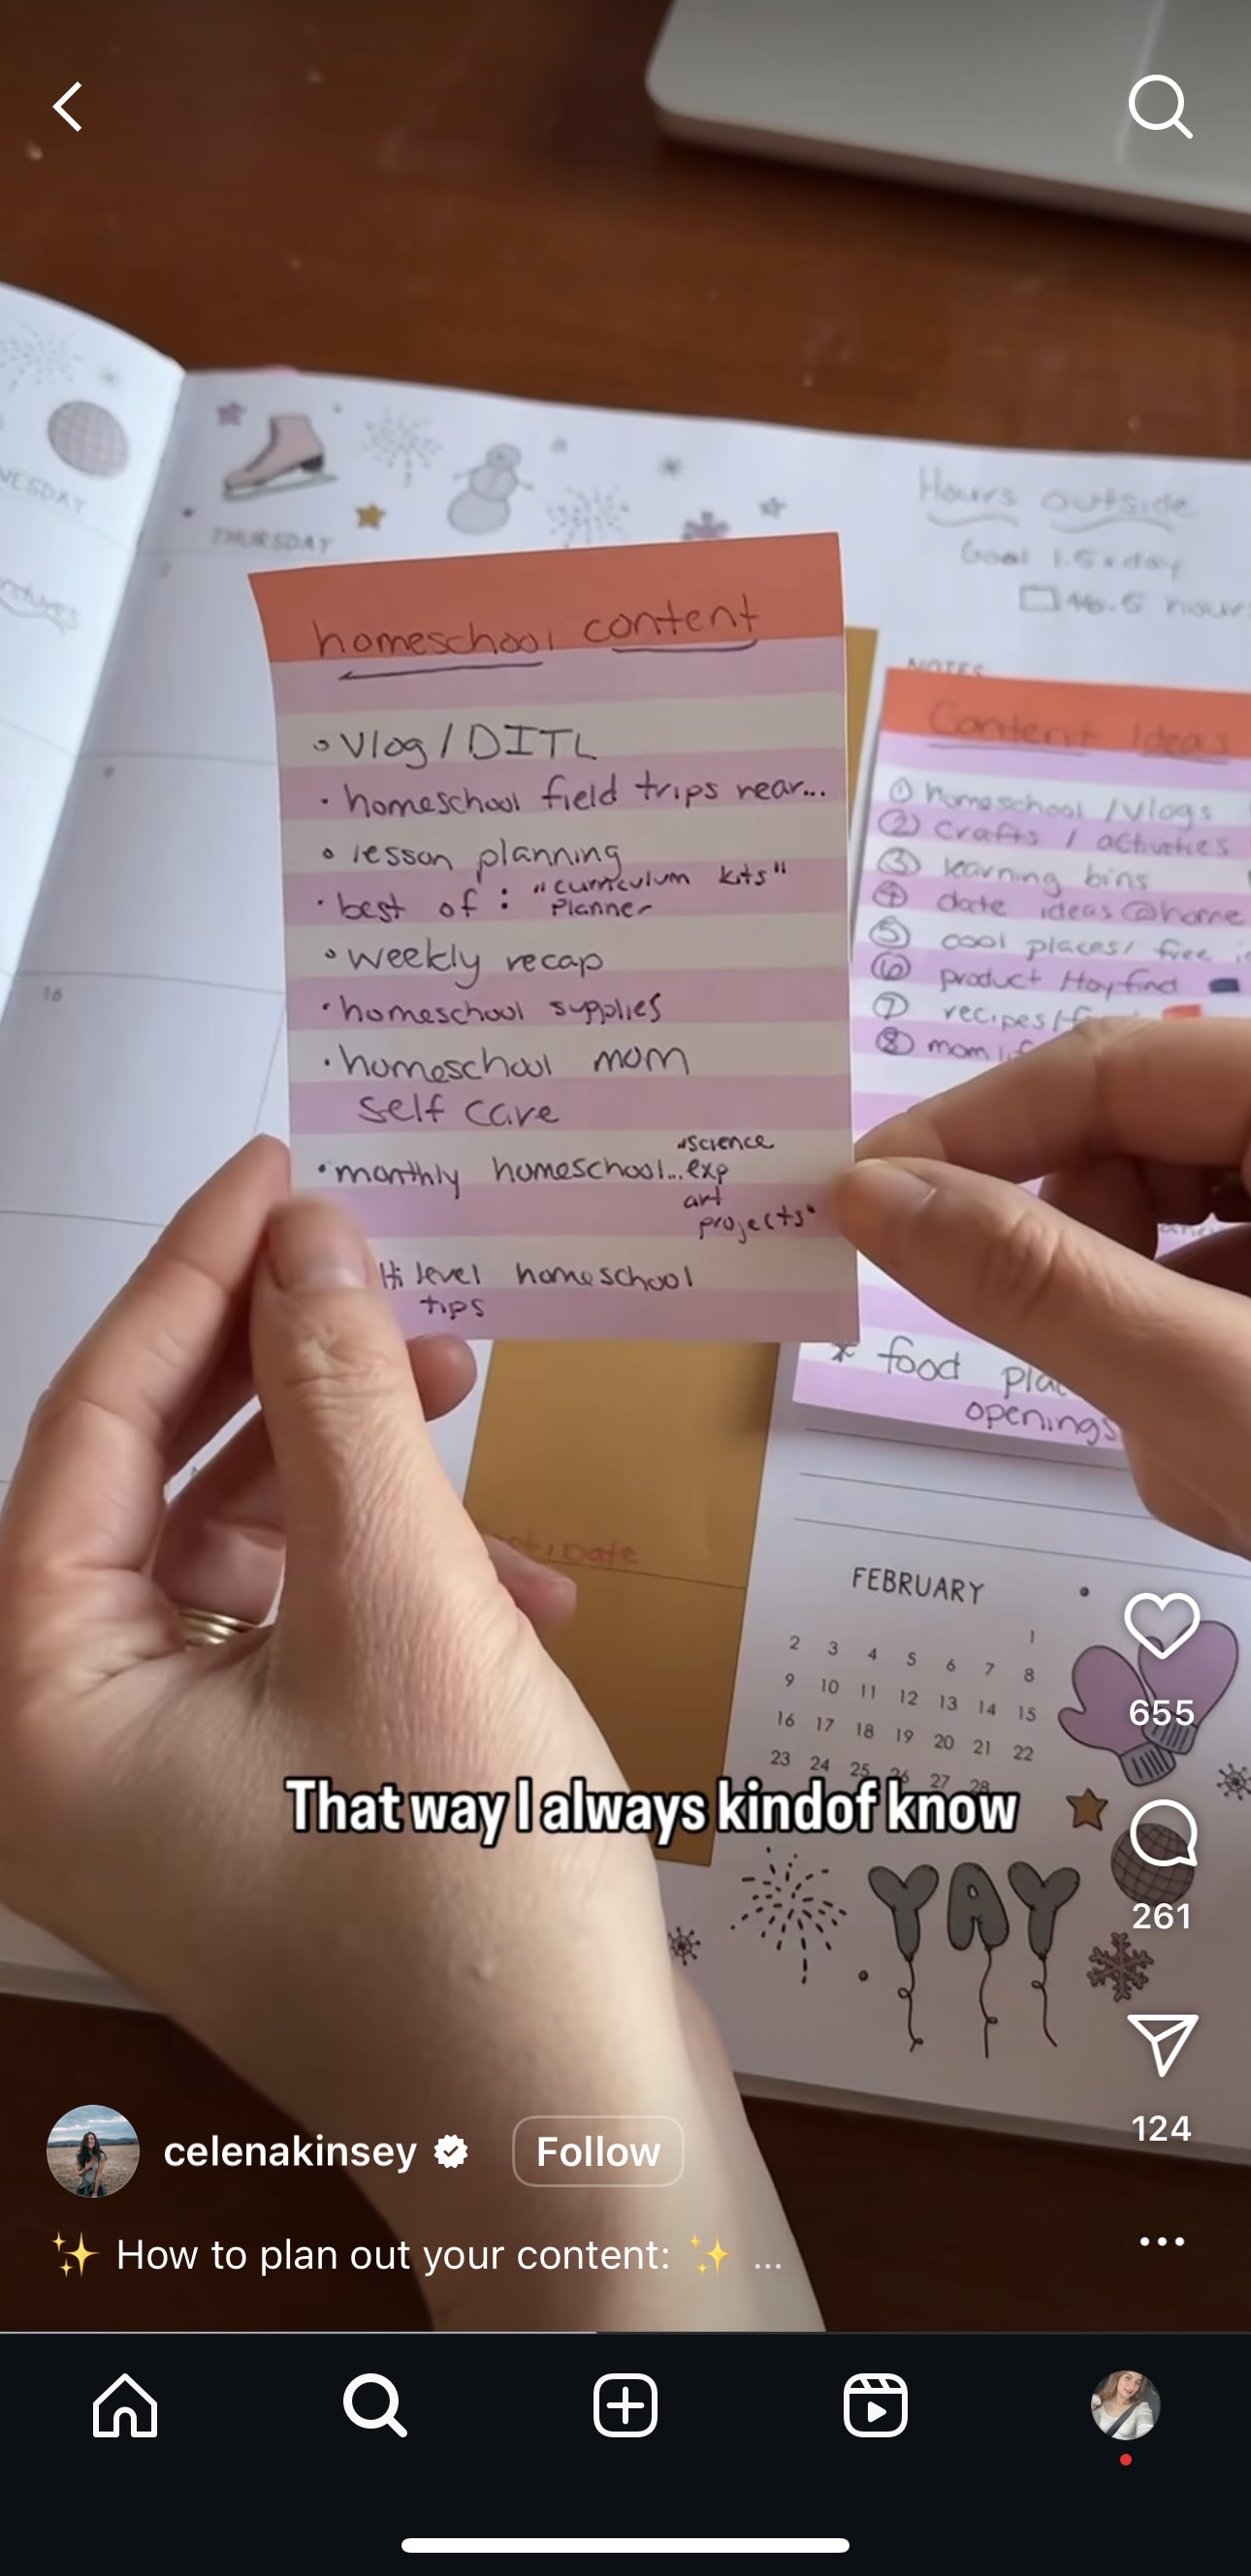 WEDNESDAY
THURSDAY
Hours outside
Goal 1.5 x day
46.5 hours
9
16
NOTES
homeschool content
• Vlog / DITL
• homeschool field trips near...
• lesson planning
• best of : "curriculum kits"
planner
• weekly recap
• homeschool supplies
• homeschool mom
self care
• monthly homeschool... "science
exp
art
projects"
Hi level homeschool
tips
Content Ideas
① homeschool / Vlogs
② crafts / activities
③ learning bins
④ date ideas @home
⑤ cool places / free
⑥ product
⑦ recipes /
⑧ mom
* food
openings
FEBRUARY
1
2 3 4 5 6 7 8
9 10 11 12 13 14 15
16 17 18 19 20 21 22
23 24 25 26 27 28
That way I always kindof know
YAY
655
261
124
celenakinsey
Follow
✨ How to plan out your content: ✨ ...